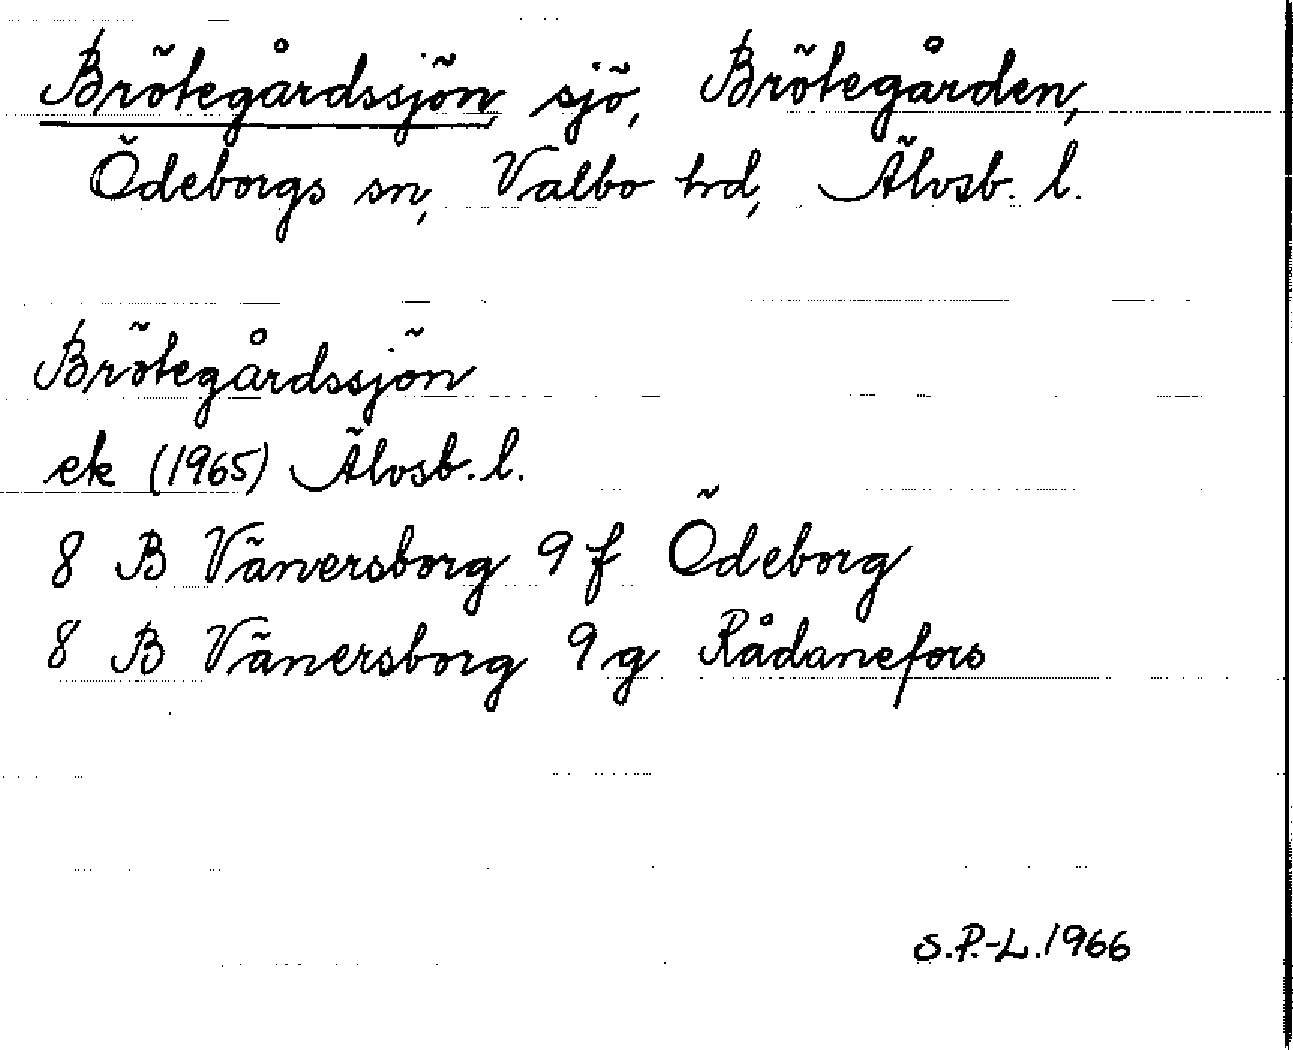 Brötegårdssjön sjö, Brötegården,
Ödeborgs sn, Valbo hrd, Älvsb. l.
Brötegårdssjön
ek (1965) Älvsb. l.
8 B Vänersborg 9 f Ödeborg
8 B Vänersborg 9 g Rådanefors
S.P.-L. 1966